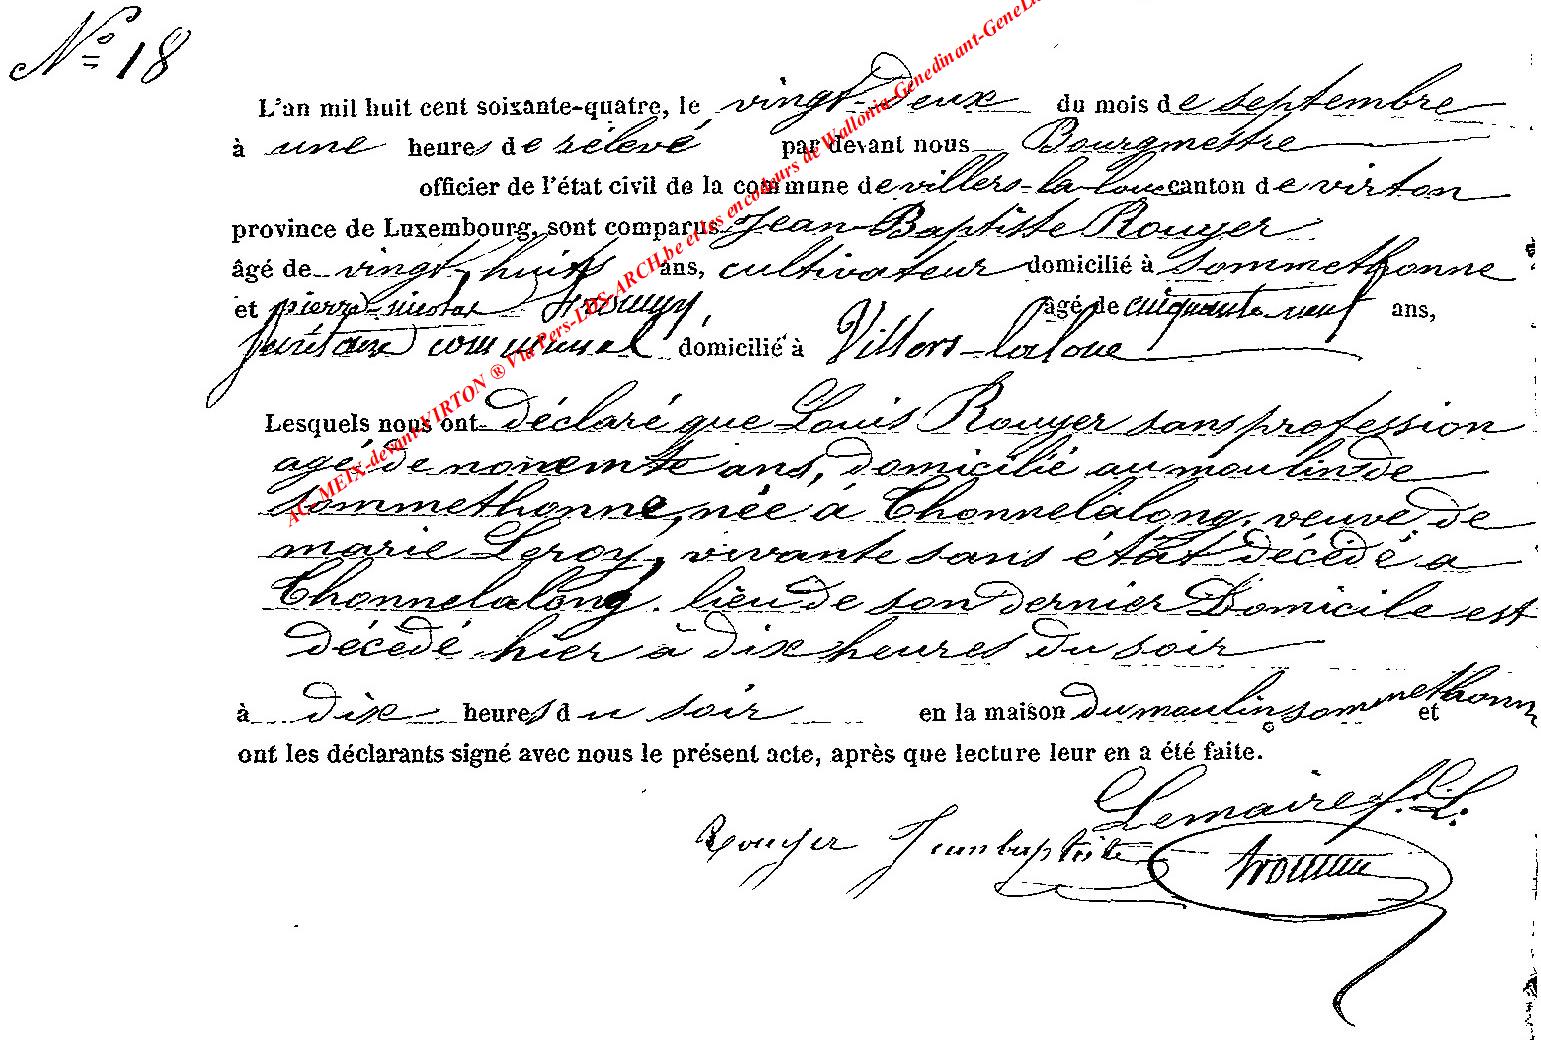 N° 18
L'an mil huit cent soixante-quatre, le vingt-deux du mois de septembre
à une heures de rélevé par devant nous Bourgmestre
officier de l'état civil de la commune de villers-la-loue canton de virton
province de Luxembourg, sont comparus Jean-Baptiste Rouyer
âgé de vingt-huit ans, cultivateur domicilié à sommethonne
et pierre-nicolas âgé de cinquante-neuf ans,
secrétaire communal domicilié à Villers-laloue
Lesquels nous ont déclaré que Louis Rouyer sans profession
agé de nonemte ans, domicilié au moulin de
sommethonne, née à Thonnelalong. veuve de
marie Leroy, vivante sans état décédé a
Thonnelalong. lieu de son dernier Domicile est
décédé hier à dix heures du soir
à dix heures du soir en la maison du moulin sommethonne et
ont les déclarants signé avec nous le présent acte, après que lecture leur en a été faite.
Lemaire f. L.
Rouyer Jeanbaptiste
AC MEIX-devant-VIRTON ® Via Pers-LDS-ARCH.be et les encodeurs de Wallonia-Genedinant-GeneLux